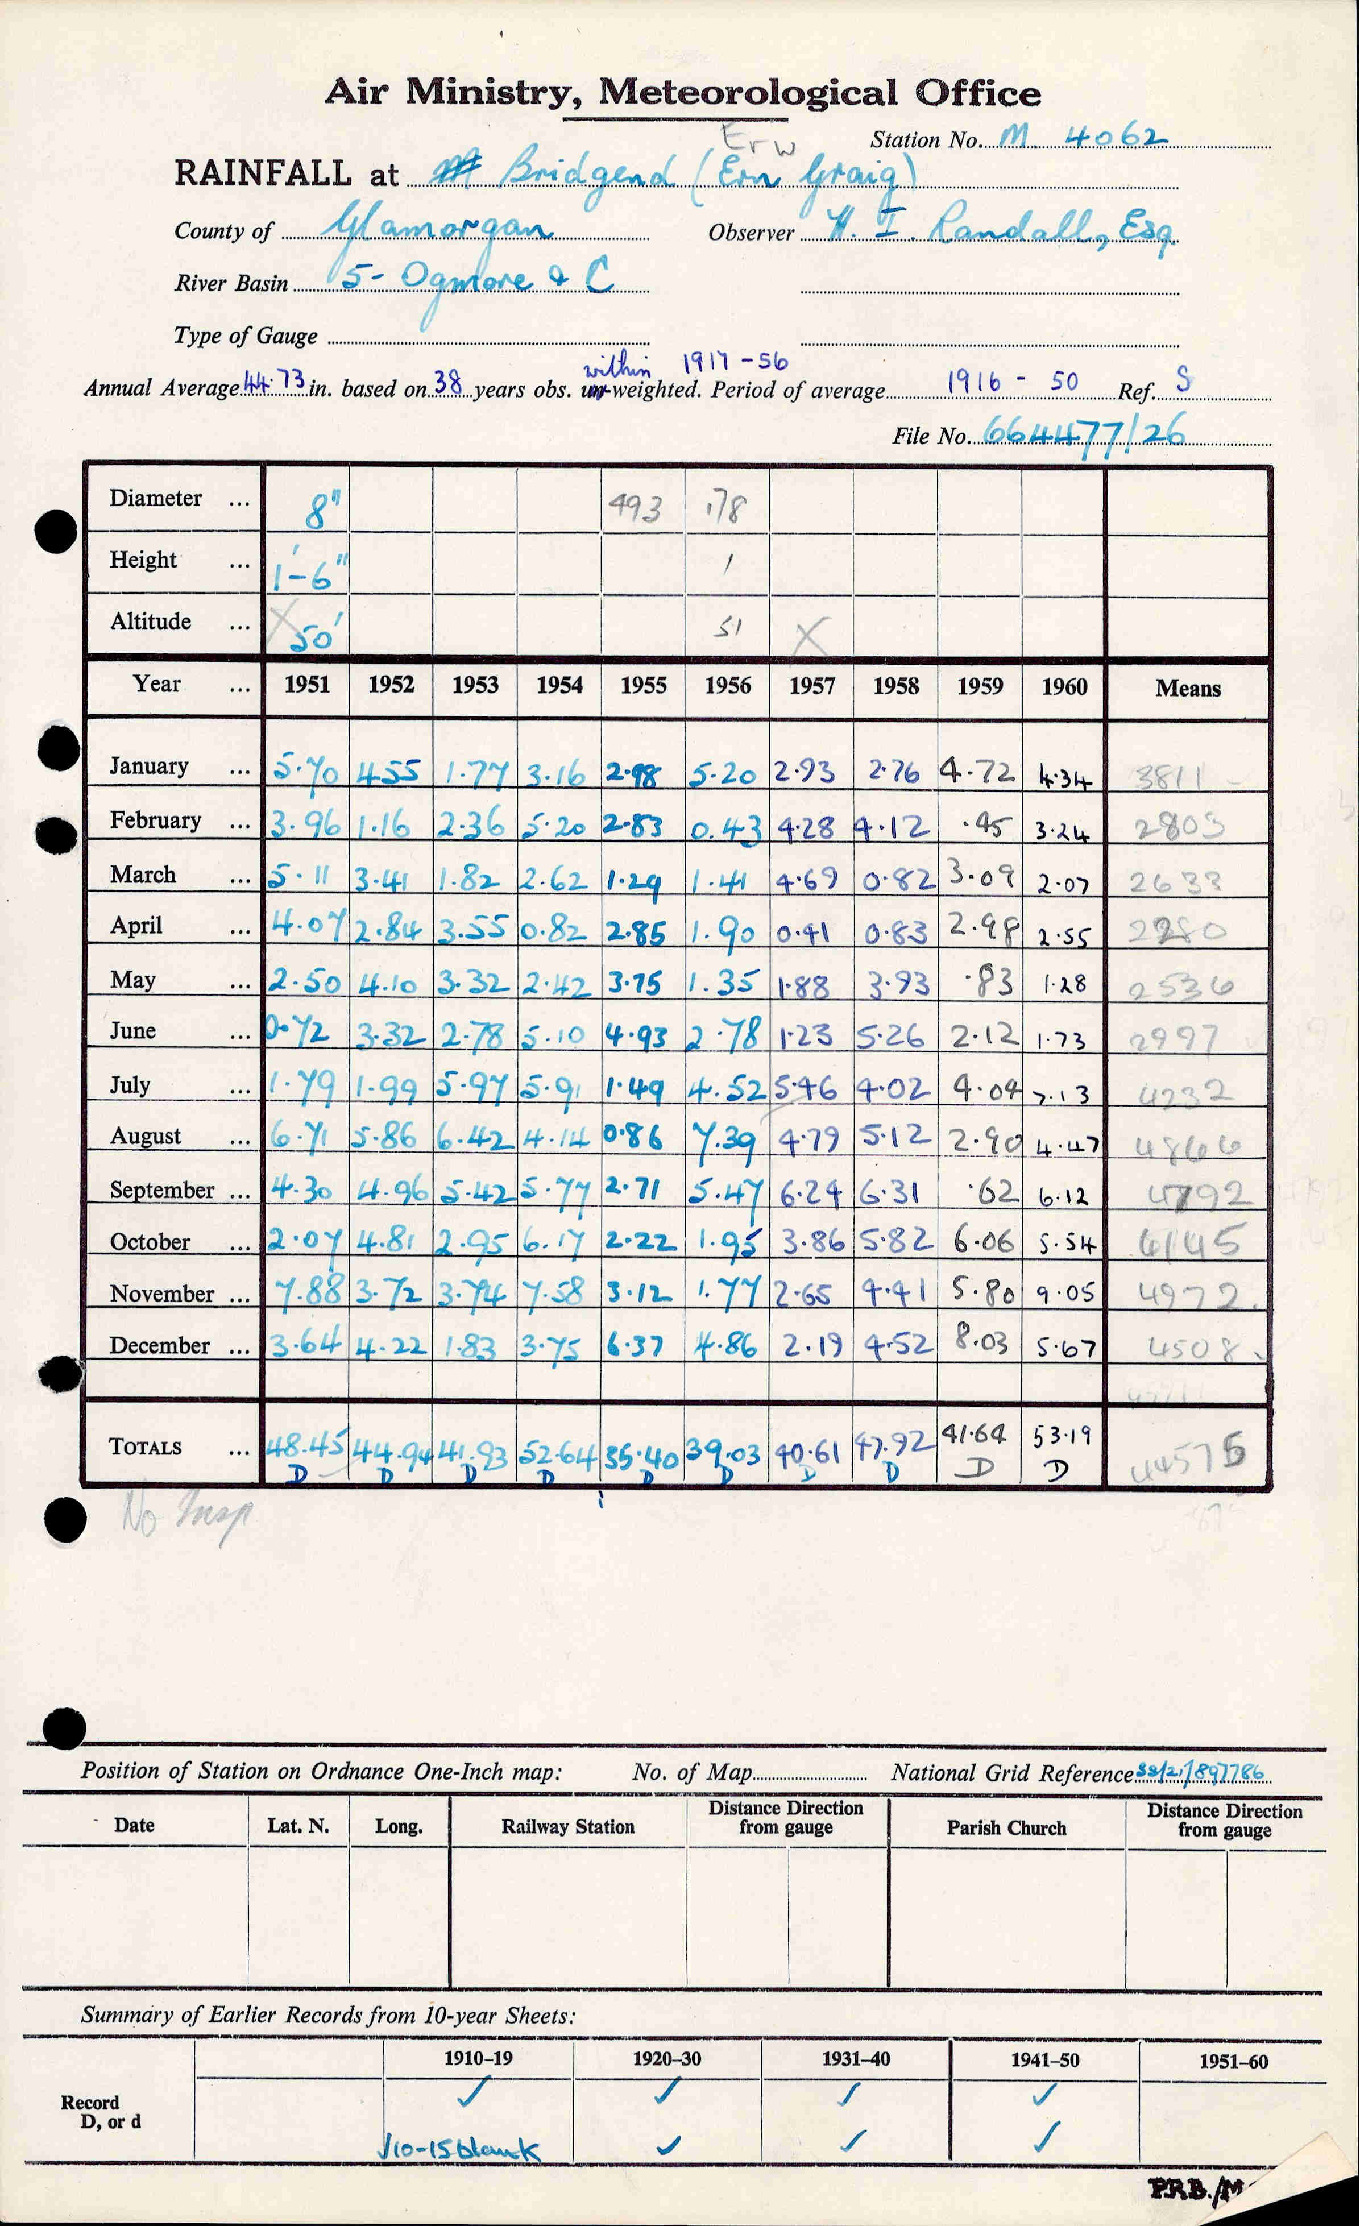 Air Ministry, Meteorological Office
Station No. M 4062
Erw
RAINFALL at Bridgend (Ern Graig)
County of Glamorgan Observer H. I. Randall, Esq.
River Basin 5- Ogmore & C
Type of Gauge
within 1917-56
Annual Average 44.73 in. based on 38 years obs. un-weighted. Period of average 1916 - 50 Ref. S
File No. 664477/26
Diameter ... 8" 493 .178
Height ... 1'-6" 1
Altitude ... X 50' 51 X
Year ... 1951 1952 1953 1954 1955 1956 1957 1958 1959 1960 Means
January ... 5.70 4.55 1.77 3.16 2.98 5.20 2.93 2.76 4.72 4.34 3811
February ... 3.96 1.16 2.36 5.20 2.83 0.43 4.28 4.12 .45 3.24 2803
March ... 5.11 3.41 1.82 2.62 1.29 1.41 4.69 0.82 3.09 2.07 2633
April ... 4.07 2.84 3.55 0.82 2.85 1.90 0.41 0.83 2.98 2.55 2280
May ... 2.50 4.10 3.32 2.42 3.75 1.35 1.88 3.93 .83 1.28 2536
June ... 0.72 3.32 2.78 5.10 4.93 2.78 1.23 5.26 2.12 1.73 2997
July ... 1.79 1.99 5.97 5.91 1.49 4.52 5.46 4.02 4.04 7.13 4232
August ... 6.71 5.86 6.42 4.14 0.86 7.39 4.79 5.12 2.90 4.47 4866
September ... 4.30 4.96 5.42 5.77 2.71 5.47 6.24 6.31 .62 6.12 4792
October ... 2.07 4.81 2.95 6.17 2.22 1.95 3.86 5.82 6.06 5.54 4145
November ... 7.88 3.72 3.74 7.58 3.12 1.77 2.65 4.41 5.80 9.05 4972
December ... 3.64 4.22 1.83 3.75 6.37 4.86 2.19 4.52 8.03 5.67 4508
TOTALS ... 48.45 44.94 41.93 52.64 35.40 39.03 40.61 47.92 41.64 53.19 44575
D D D D D D D D D D
No Insp
Position of Station on Ordnance One-Inch map: No. of Map National Grid Reference SS/21/897786
Date Lat. N. Long. Railway Station Distance Direction from gauge Parish Church Distance Direction from gauge
Summary of Earlier Records from 10-year Sheets:
1910–19 1920–30 1931–40 1941–50 1951–60
Record ✓ ✓ ✓ ✓
D, or d √10-15 blank ✓ ✓ ✓
P.R.B./M